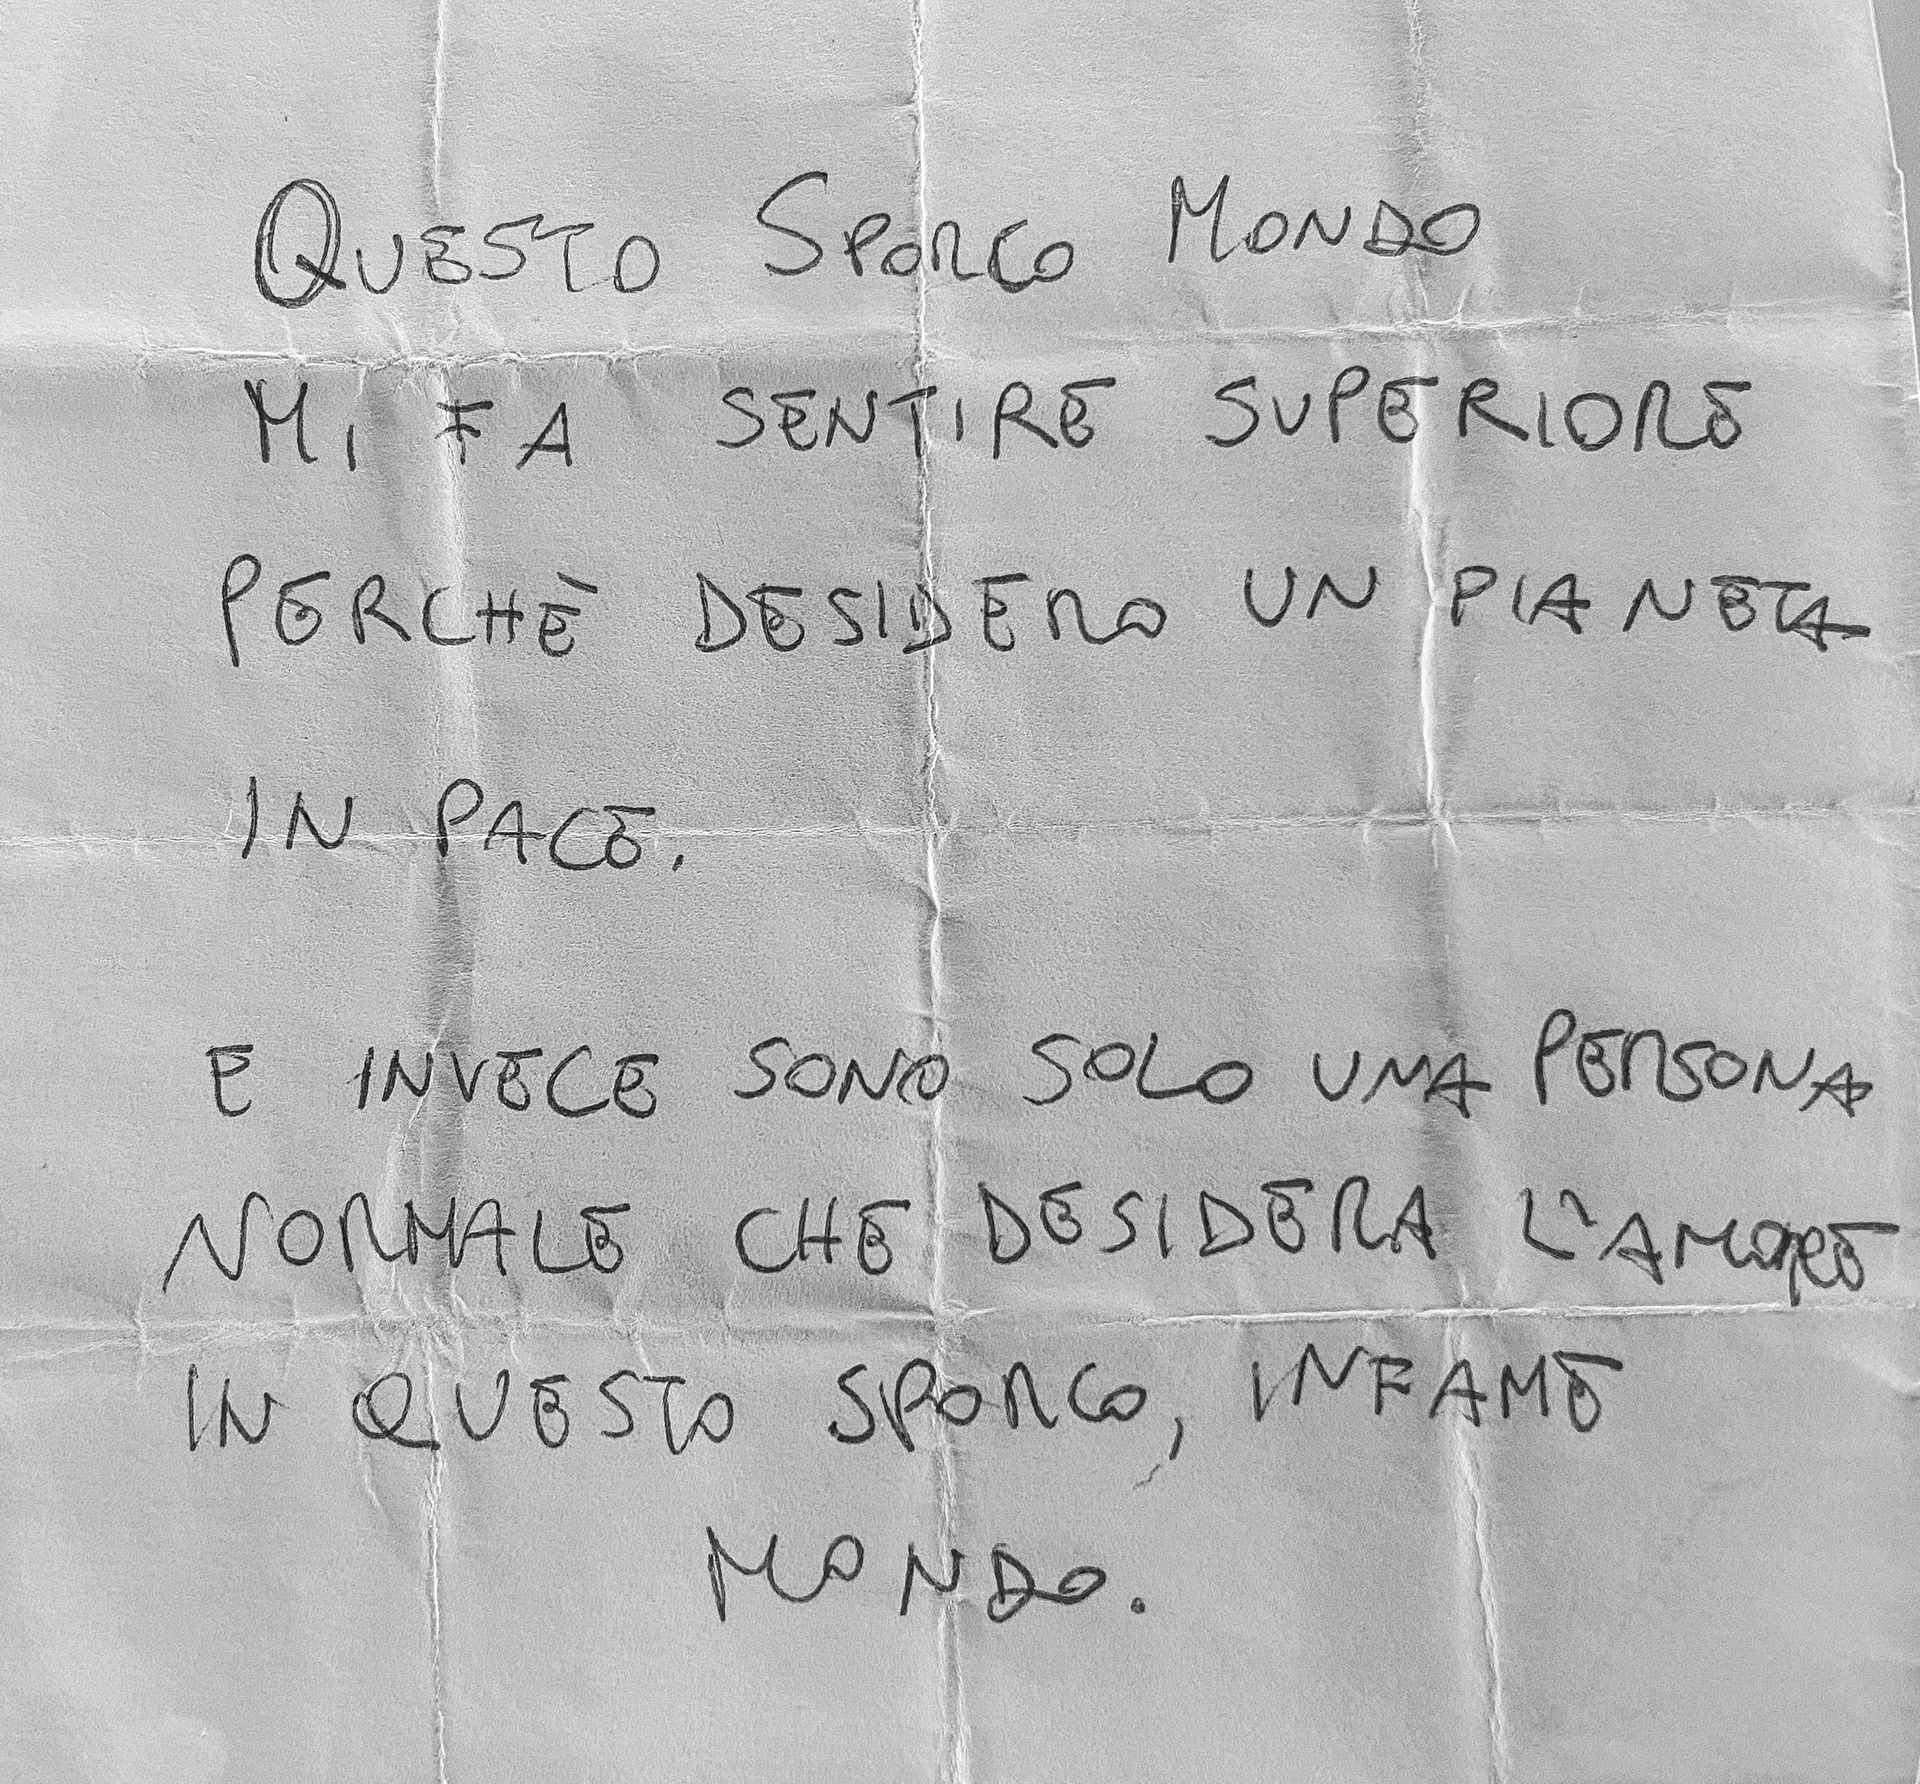 QUESTO SPORCO MONDO
MI FA SENTIRE SUPERIORE
PERCHÈ DESIDERO UN PIANETA
IN PACE.
E INVECE SONO SOLO UNA PERSONA
NORMALE CHE DESIDERA L'AMORE
IN QUESTO SPORCO, INFAME
MONDO.